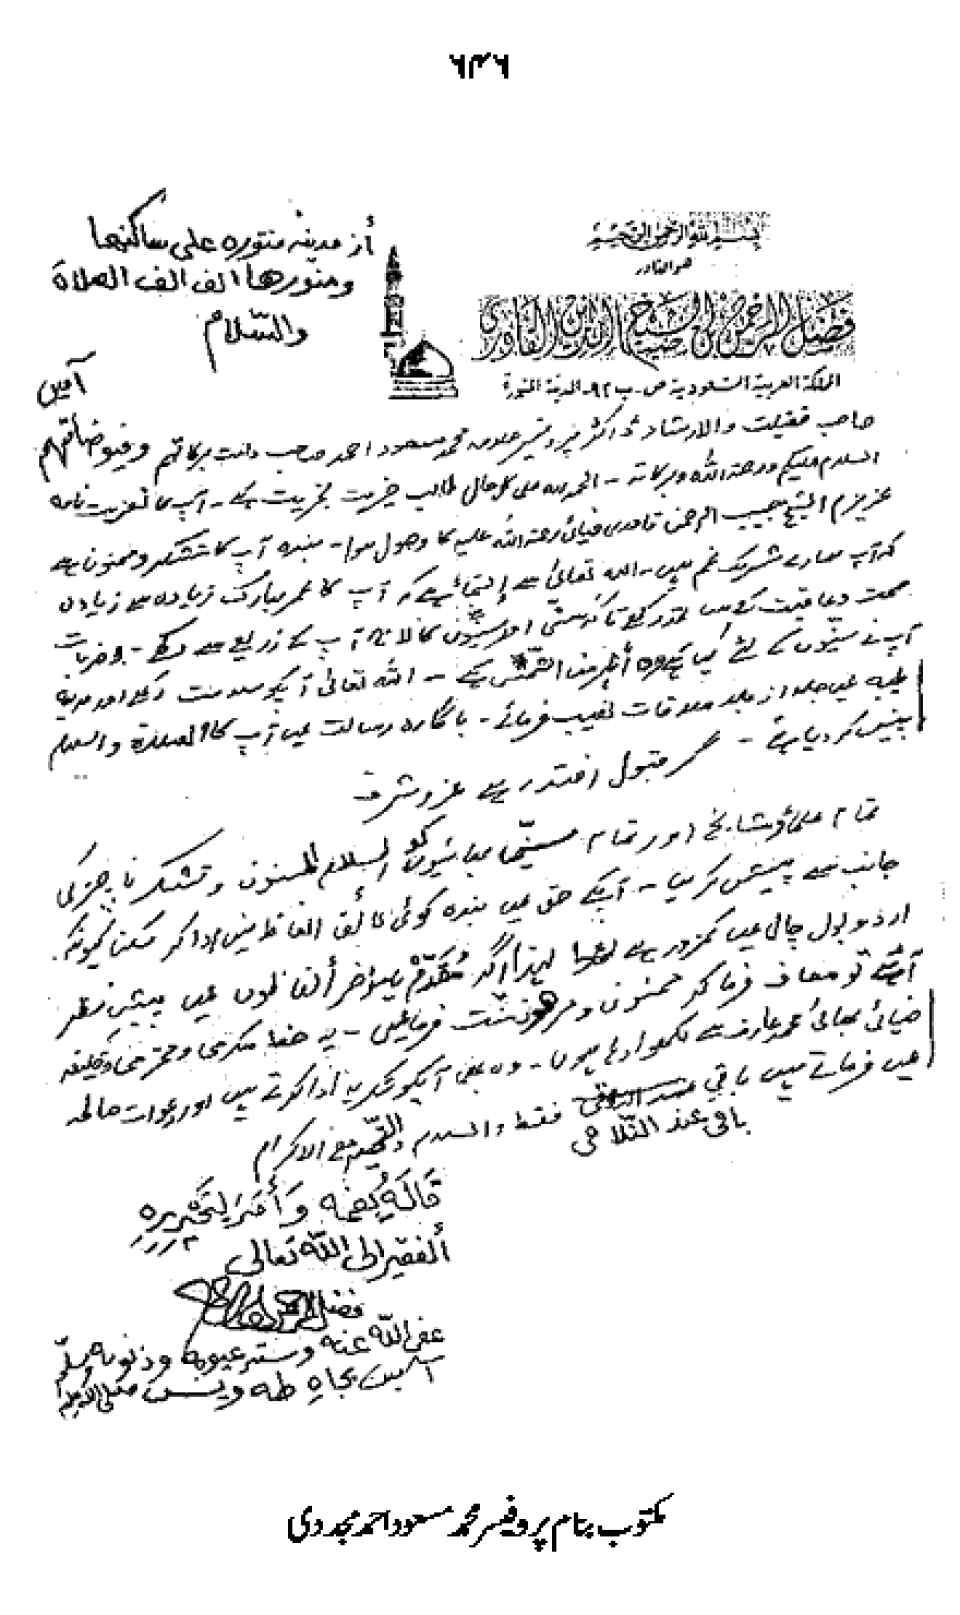 ۶۴۶
بسم الله الرحمن الرحيم
هو القادر
فضل الرحمن بن الشيخ ضياء الدين القادري
المملكة العربية السعودية ص ـ ب ۹۲ ـ المدينة المنورة
أز مدینہ منورہ علی ساکنھا
ومنورھا الف الف الصلاة
والسّلام
آمین
صاحب فضیلت والارشاد ڈاکٹر پروفیسر علامہ محمد مسعود احمد صاحب دامت برکاتہم وفیوضاتہم
السلام علیکم ورحمۃ اللہ وبرکاتہ ۔ الحمد للہ علی کل حال طالب خیریت بخیریت ہے ۔ آپ کا تعزیت نامہ
عزیزم الشیخ حبیب الرحمن قادری ضیائی رحمۃ اللہ علیہ کا وصول ہوا ۔ بندہ آپ کا متشکر وممنون ہے
کہ آپ ہمارے شریک غم ہیں ۔ اللہ تعالیٰ سے إلتجا ہے کہ آپ کا عمر مبارک زیادہ سے زیادہ
صحت وعافیت کے ساتھ رکھے تاکہ سنّی اور سنّیوں کا آپ کے ذریعے سے
آپ نے سنّیوں کے لئے کیا ہے وہ أظہر من الشّمس ہے ۔ اللہ تعالیٰ آپکو سلامت رکھے اور مدینہ
طیبہ میں جلد از جلد ملاقات نصیب فرمائے ۔ بارگاہ رسالت میں آپ کا الصلاۃ والسلام
پیش کر دیا ہے ۔ گر قبول افتد زہے عز و شرف
تمام علماء و مشائخ اور تمام سنّی بھائیوں کو السلام المسنون و تشکر ناچیز کی
جانب سے پیش کریں ۔ آپکے حق میں بندہ کوئی لائق الفاظ نہیں ادا کر سکتا کیونکہ
اردو بول چال میں کمزور ہے لہذا اگر مُقدّم یا مؤخر ألفاظوں میں پیش نظر
آئے تو معاف فرما کر ممنون و مرھون منّت فرمائیں ۔ یہ خط مکرمی و محترمی خلیفہ
ضیائی بھائی محمد عارف سے لکھوا رہا ہوں ۔ وہ بھی آپکو شکریہ أدا کرتے ہیں اور دعوات صالحہ
میں فرماتے ہیں باقی
باقی عند التّلاقی
فقط والسلام مع الاکرام
قَالَهُ بِفمه وَأَمَرَ بِتَحْرِيرِهِ
ألفقیر إلی اللہ تعالی
فضل الرحمن
عفی اللہ عنہ وستر عیوبہ وذنوبہ
آمین بجاہ طه ويٰس
مکتوب بنام پروفیسر محمد مسعود احمد مجددی